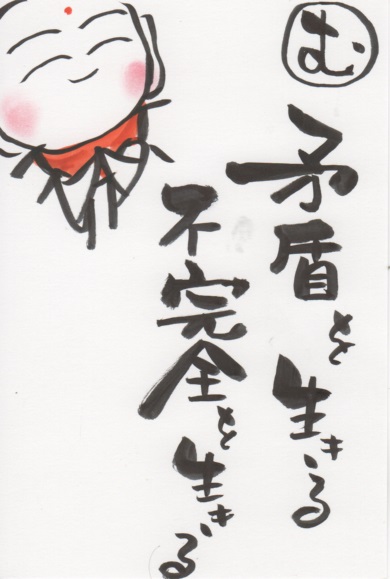 む
矛盾を生きる
不完全を生きる